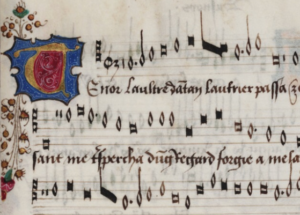 Tenor Laultre dantan lautrier passa
sant me tspercha dung Regard forgie a me